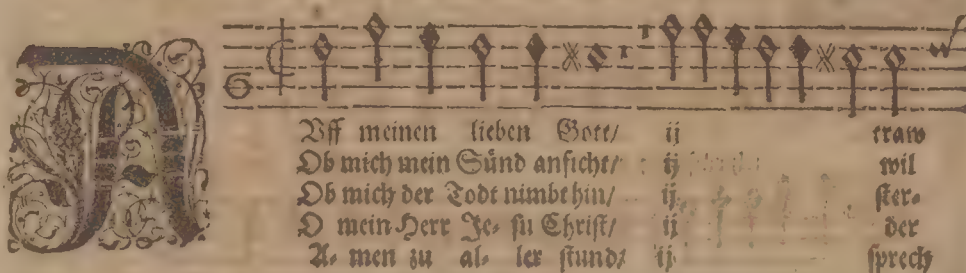 A
Vff meinen lieben Gott/ ij traw
Ob mich mein Sünd anficht/ ij wil
Ob mich der Todt nimbt hin/ ij ster-
O mein Herr Je- su Christ/ ij der
A- men zu al- ler stund/ ij sprech